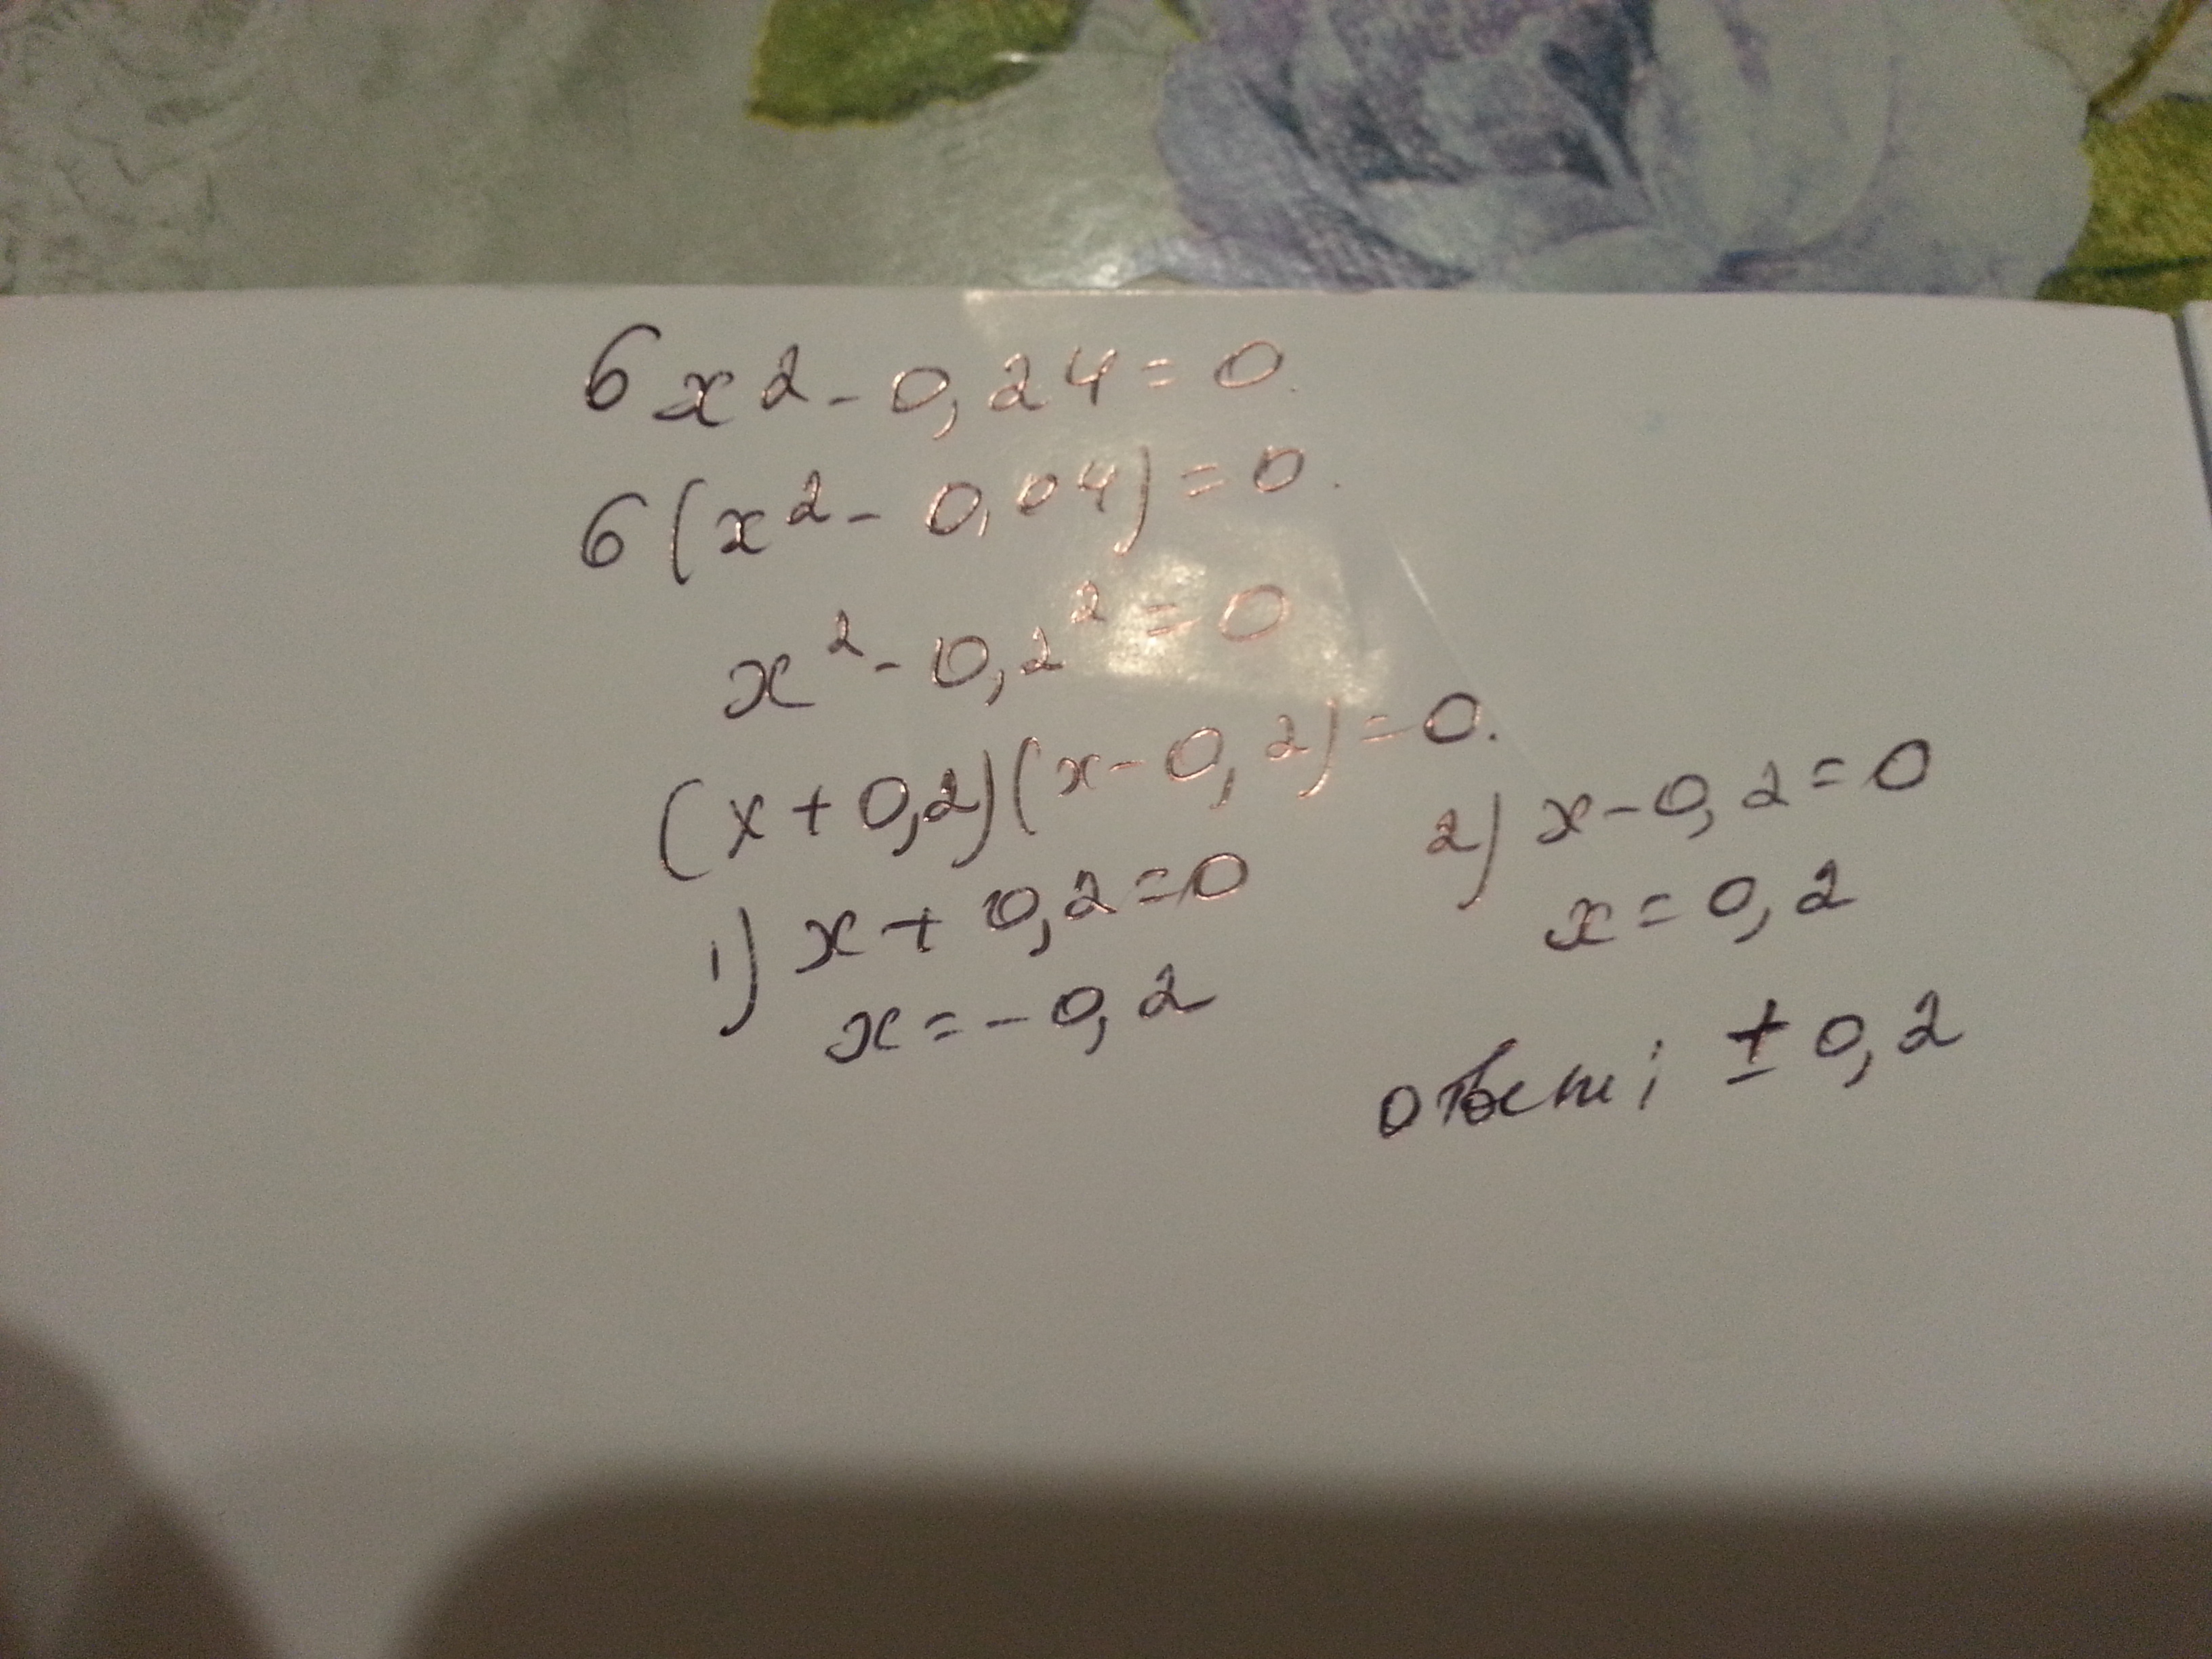 6x² - 0,24 = 0.
6(x² - 0,04) = 0.
x² - 0,2² = 0
(x + 0,2)(x - 0,2) = 0.
1) x + 0,2 = 0
x = - 0,2
2) x - 0,2 = 0
x = 0,2
ответ: ± 0,2